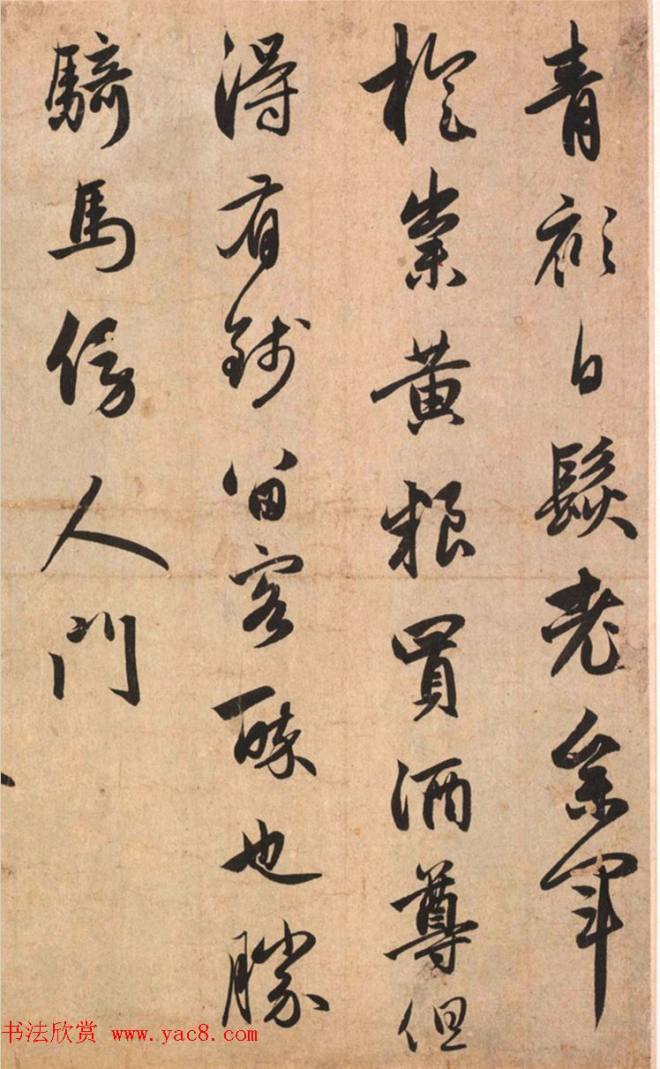 青衫白髮老參軍
旋粜黃粮買酒尊但
得有錢留客醉也勝
騎馬傍人門
书法欣赏 www.yac8.com